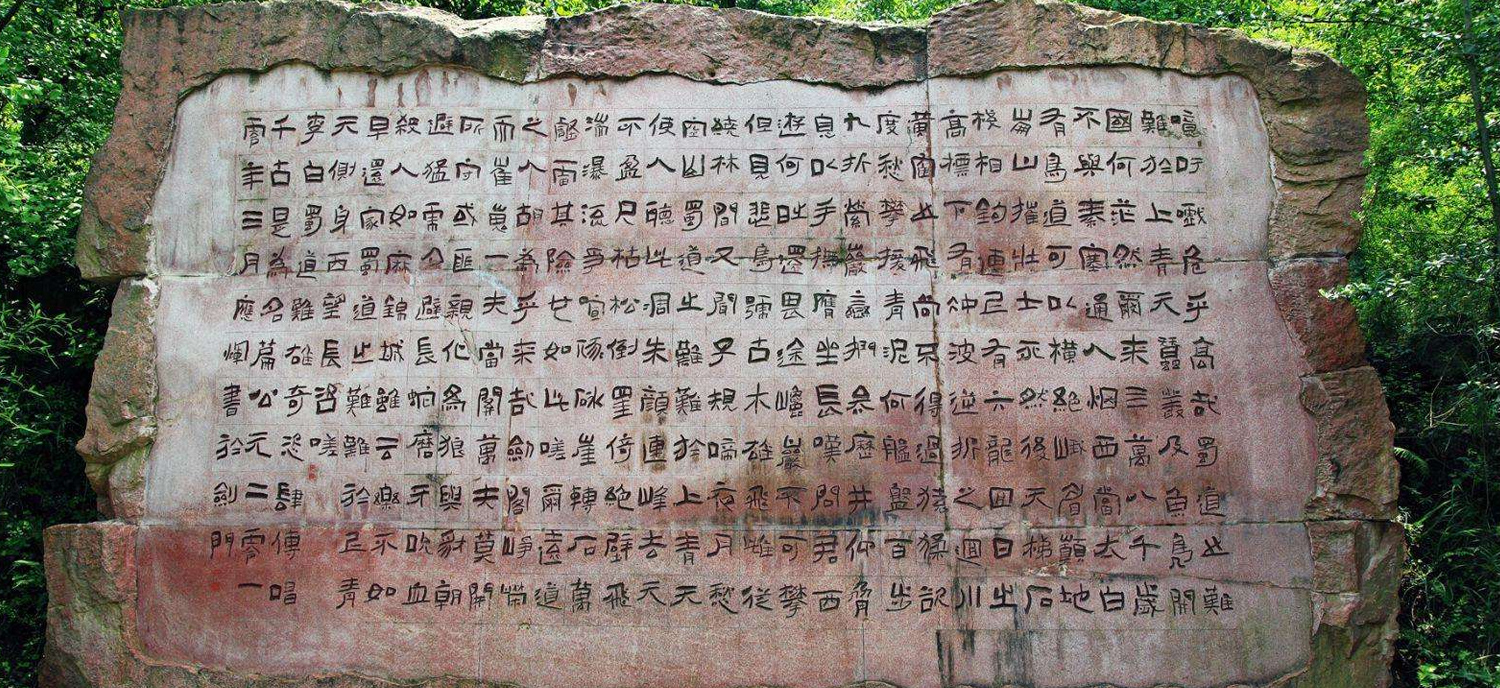 噫吁戲危乎高哉蜀道之難
難於上青天蠶叢及魚鳧開
國何茫然爾來三萬八千歲
不與秦塞通人烟西當太白
有鳥道可以橫絕峨眉巔地
崩山摧壯士死然後天梯石
棧相鉤連上有六龍回日之
高標下有衝波逆折之迴川
黃鶴之飛尚不得過猿猱欲
度愁攀援青泥何盤盤百步
九折縈巖巒捫參歷井仰脅
息以手撫膺坐長嘆問君西
遊何時還畏途巉巖不可攀
但見悲鳥號古木雄飛雌從
繞林間又聞子規啼夜月愁
空山蜀道之難難於上青天
使人聽此凋朱顏連峰去天
不盈尺枯松倒掛倚絕壁飛
湍瀑流爭喧豗砯崖轉石萬
壑雷其險也如此嗟爾遠道
之人胡為乎來哉劍閣崢嶸
而崔嵬一夫當關萬夫莫開
所守或匪親化為狼與豺朝
避猛虎夕避長蛇磨牙吮血
殺人如麻錦城雖云樂不如
早還家蜀道之難難於上青
天側身西望長咨嗟
李白蜀道難雄奇恣肆傳唱
千古是為名篇公元二零一
零年三月應輝書於劍門